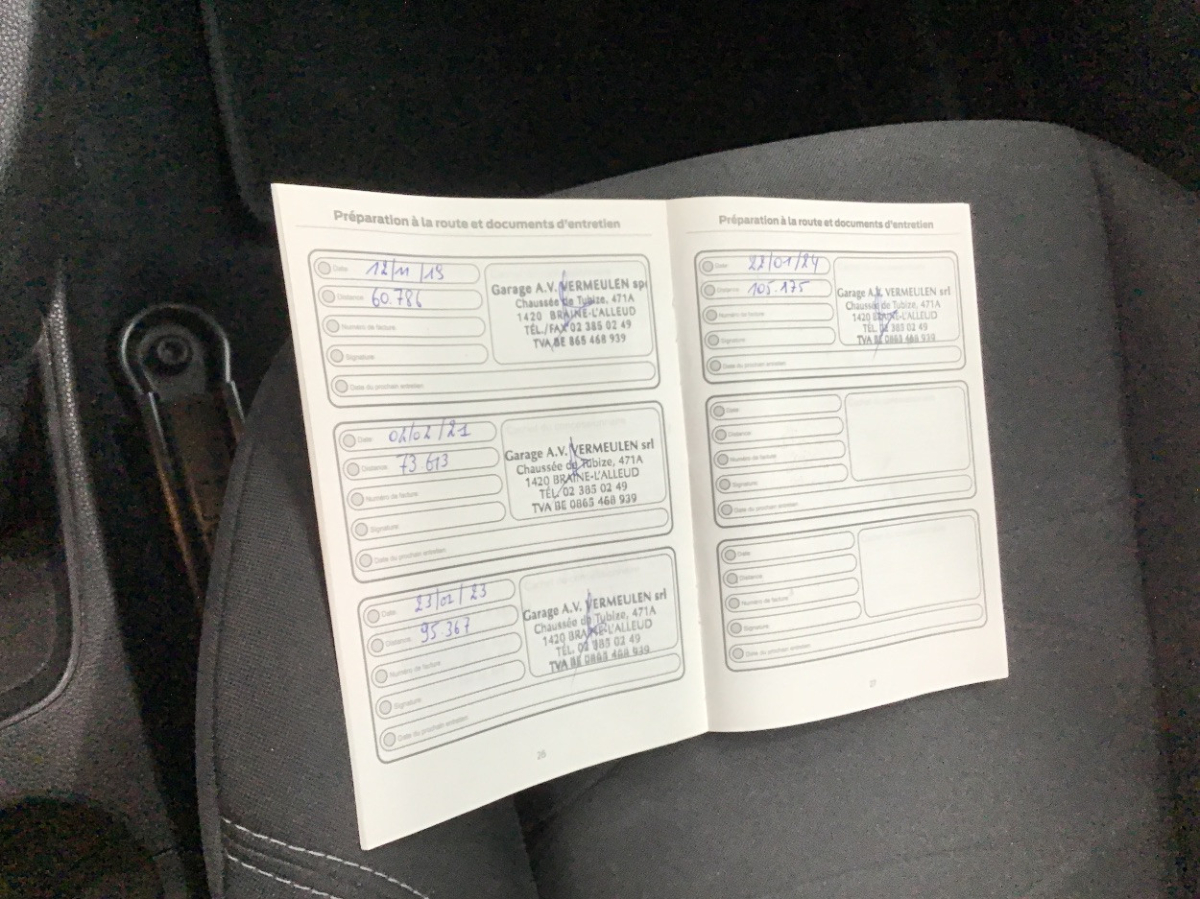 Préparation à la route et documents d'entretien
Date 12/11/19
Distance 60.786
Numéro de facture
Signature
Date du prochain entretien
Garage A.V. VERMEULEN spr
Chaussée de Tubize, 471A
1420 BRAINE-L'ALLEUD
TÉL./FAX 02 385 02 49
TVA BE 865 468 939
Date 02/02/21
Distance 73 613
Numéro de facture
Signature
Date du prochain entretien
Garage A.V. VERMEULEN srl
Chaussée de Tubize, 471A
1420 BRAINE-L'ALLEUD
TÉL. 02 385 02 49
TVA BE 0865 468 939
Date 23/02/23
Distance 95 367
Numéro de facture
Signature
Date du prochain entretien
Garage A.V. VERMEULEN srl
Chaussée de Tubize, 471A
1420 BRAINE-L'ALLEUD
TÉL. 02 385 02 49
TVA BE 0865 468 939
26
Préparation à la route et documents d'entretien
Date 22/01/24
Distance 105.175
Numéro de facture
Signature
Date du prochain entretien
Garage A.V. VERMEULEN srl
Chaussée de Tubize, 471A
1420 BRAINE-L'ALLEUD
TÉL. 02 385 02 49
TVA BE 0865 468 939
Date
Distance
Numéro de facture
Signature
Date du prochain entretien
Date
Distance
Numéro de facture
Signature
Date du prochain entretien
27